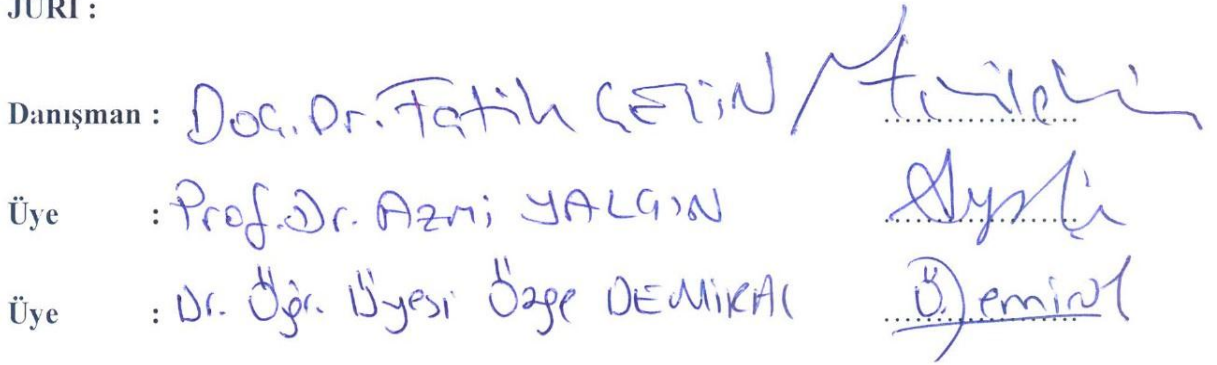 JÜRİ :
Danışman : Doç. Dr. Fatih ÇETİN
Üye : Prof. Dr. Azmi YALÇIN
Üye : Dr. Öğr. Üyesi Özge DEMİRAL Ö.Demiral